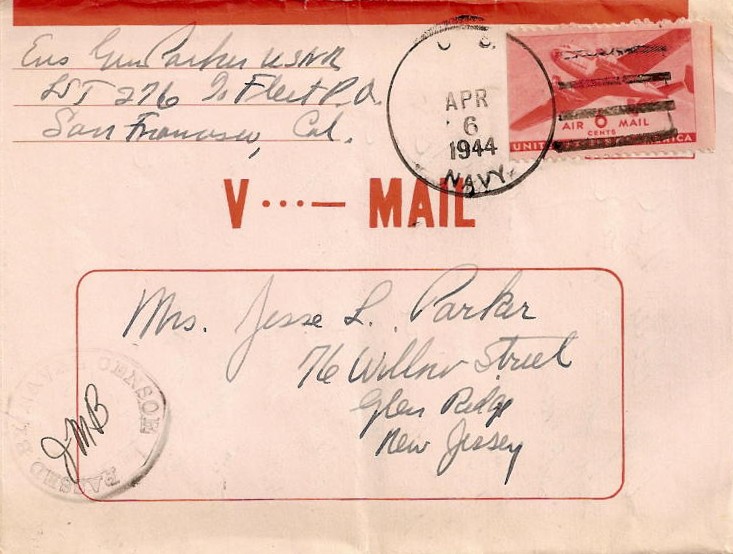 Ens Gene Parker USNR
LST 276 % Fleet P.O.
San Francisco, Cal.
U. S.
APR
6
1944
NAVY
AIR 6 MAIL
CENTS
UNITED STATES OF AMERICA
V ···— MAIL
Mrs. Jesse L. Parker
76 Willow Street
Glen Ridge
New Jersey
PASSED BY NAVAL CENSOR
JMB